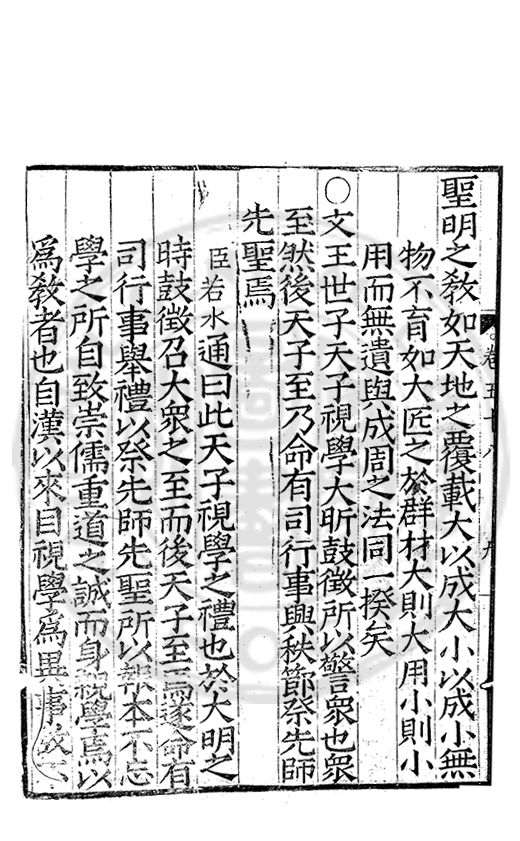 聖明之敎如天地之覆載大以成大小以成小無
物不育如大匠之於群材大則大用小則小
用而無遺與成周之法同一揆矣
○文王世子天子視學大昕鼓徵所以警衆也衆
至然後天子至乃命有司行事興秩節祭先師
先聖焉
臣若水通曰此天子視學之禮也於大明之
時鼓徵召大衆之至而後天子至焉遂命有
司行事舉禮以祭先師先聖所以報本不忘
學之所自致崇儒重道之誠而身親學焉以
爲敎者也自漢以來目視學爲異事故
卷五十八
九